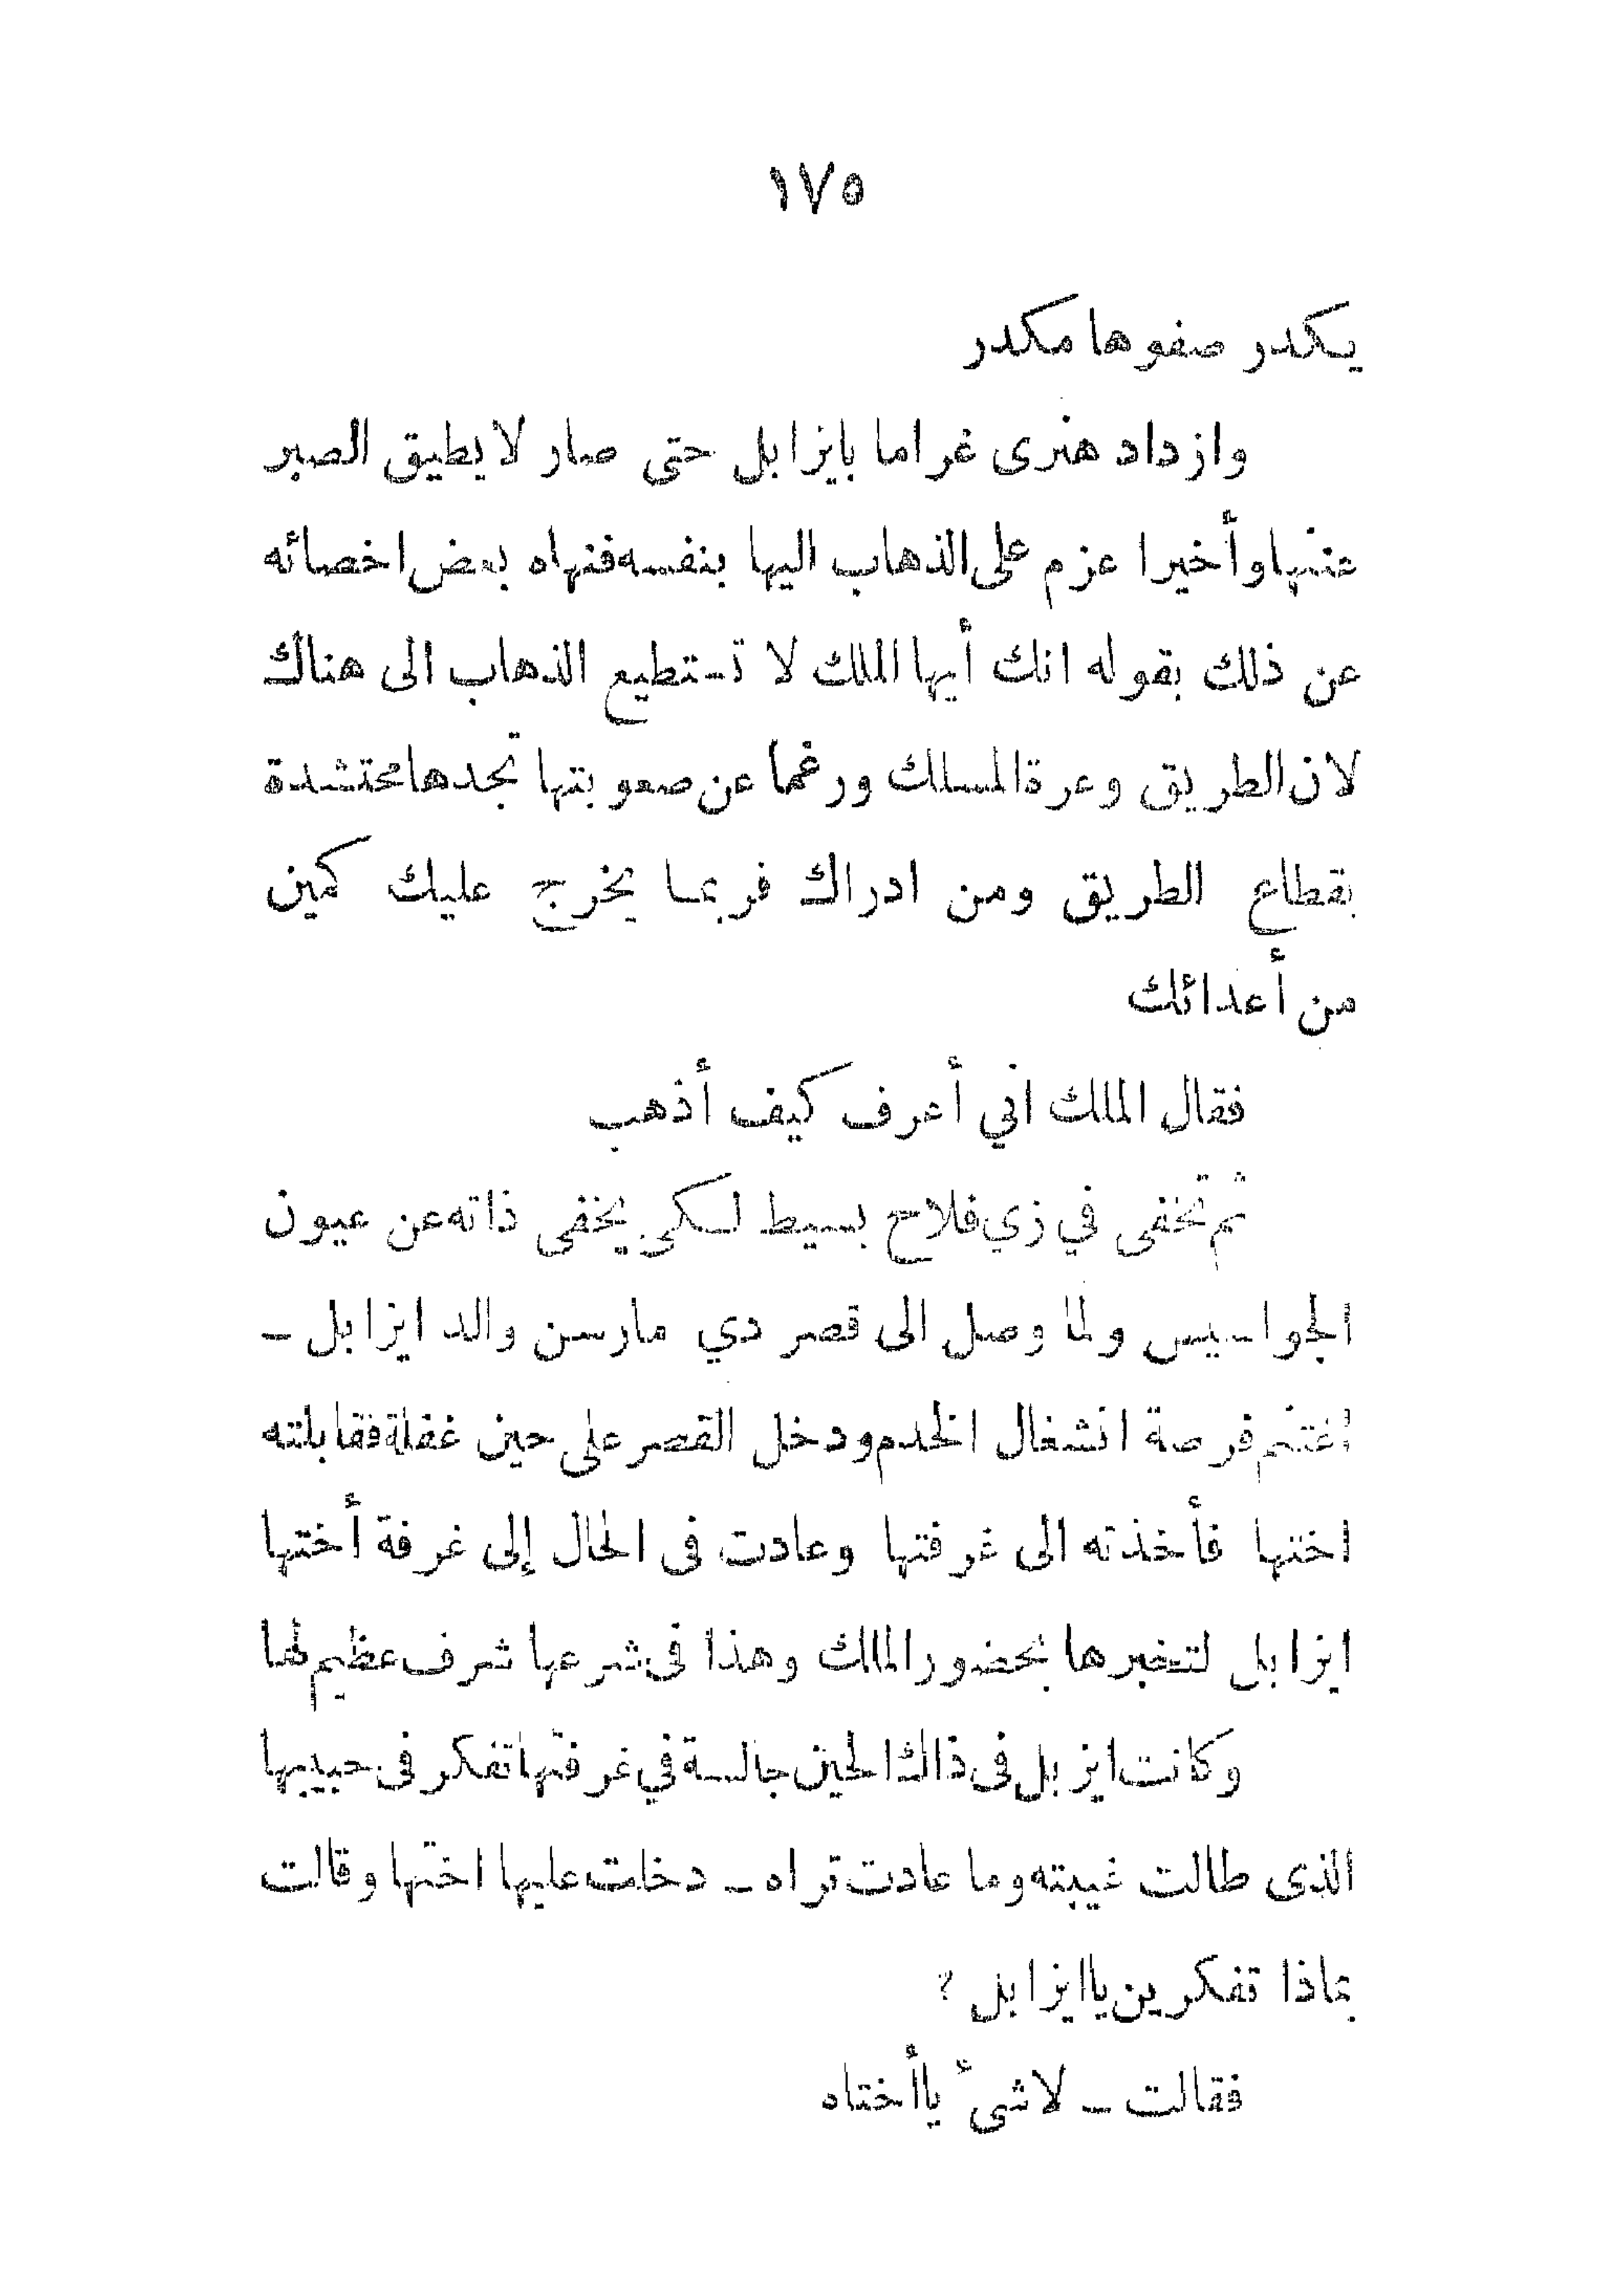 ١٧٥
يكدر صفوها مكدر
وازداد هنرى غراما بايزابل حتى صار لا يطيق الصبر
عنها وأخيرا عزم على الذهاب اليها بنفسه فنهاه بعض اخصائه
عن ذلك بقوله انك أيها الملك لا تستطيع الذهاب الى هناك
لان الطريق وعرة المسلك ورغما عن صعوبتها تجدها محتشدة
بقطاع الطريق ومن ادراك فربما يخرج عليك كمين
من أعدائك
فقال الملك اني أعرف كيف أذهب
ثم تخفى في زي فلاح بسيط لكى يخفى ذاته عن عيون
الجواسيس ولما وصل الى قصر دي مارسن والد ايزابل ـ
اغتنم فرصة انشغال الخدم ودخل القصر على حين غفلة فقابلته
اختها فأخذته الى غرفتها وعادت فى الحال إلى غرفة أختها
ايزابل لتخبرها بحضور الملك وهذا فى شرعها شرف عظيم لها
وكانت ايزبل فى ذاك الحين جالسة في غرفتها تفكر فى حبيبها
الذى طالت غيبته وما عادت تراه ـ دخلت عليها اختها وقالت
بماذا تفكرين يا ايزابل ؟
فقالت ـ لا شىء يا أختاه